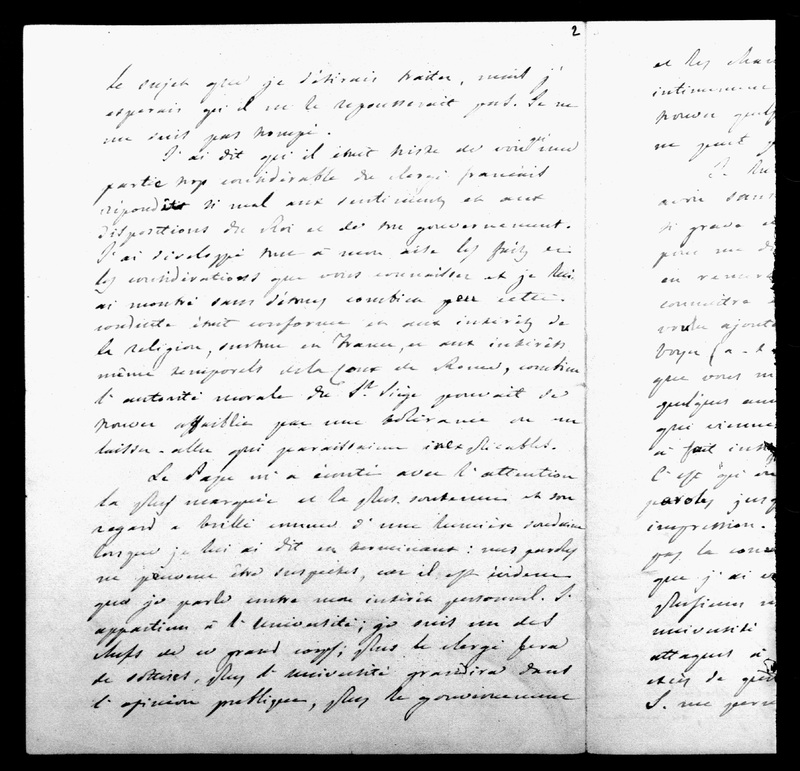 2
le sujet que je désirais traiter, mais j'
espérais qu'il ne le repousserait pas. Je ne
me suis pas trompé.
J'ai dit qu'il était triste de voir qui une
partie trop considérable du clergé français
répondît si mal aux sentiments et aux
dispositions du Roi et de son gouvernement.
J'ai développé tout à mon aise les faits et
les considérations que vous connaissez et je lui
ai montré sans détours combien cette
conduite était conforme et aux intérêts de
la religion, surtout en France, et aux intérêts
même temporels de la Cour de Rome, combien
l'autorité morale du St Siège pouvait se
trouver affaiblie par une tolérance ou un
laisser-aller qui paraissaient inexplicables.
Le Pape m'a écouté avec l'attention
la plus marquée et la plus soutenue et son
regard a brillé comme d'une lumière soudaine
lorsque je lui ai dit en terminant : mes paroles
ne peuvent être suspectes, car il est évident
que je parle contre mon intérêt personnel. J'
appartiens à l'Université ; je suis un des
chefs de ce grand corps ; plus le clergé fera
de sottises, plus l'université grandira dans
l'opinion publique, plus le gouvernement
et les
intimement
trouver
ne peut
si grave
pour me
connaître
voulu ajouter
que vous
quelques
qui
à fait
C'est qui
paroles
impression.
pas la
que j'ai
plusieurs
université
attaques à
excès de